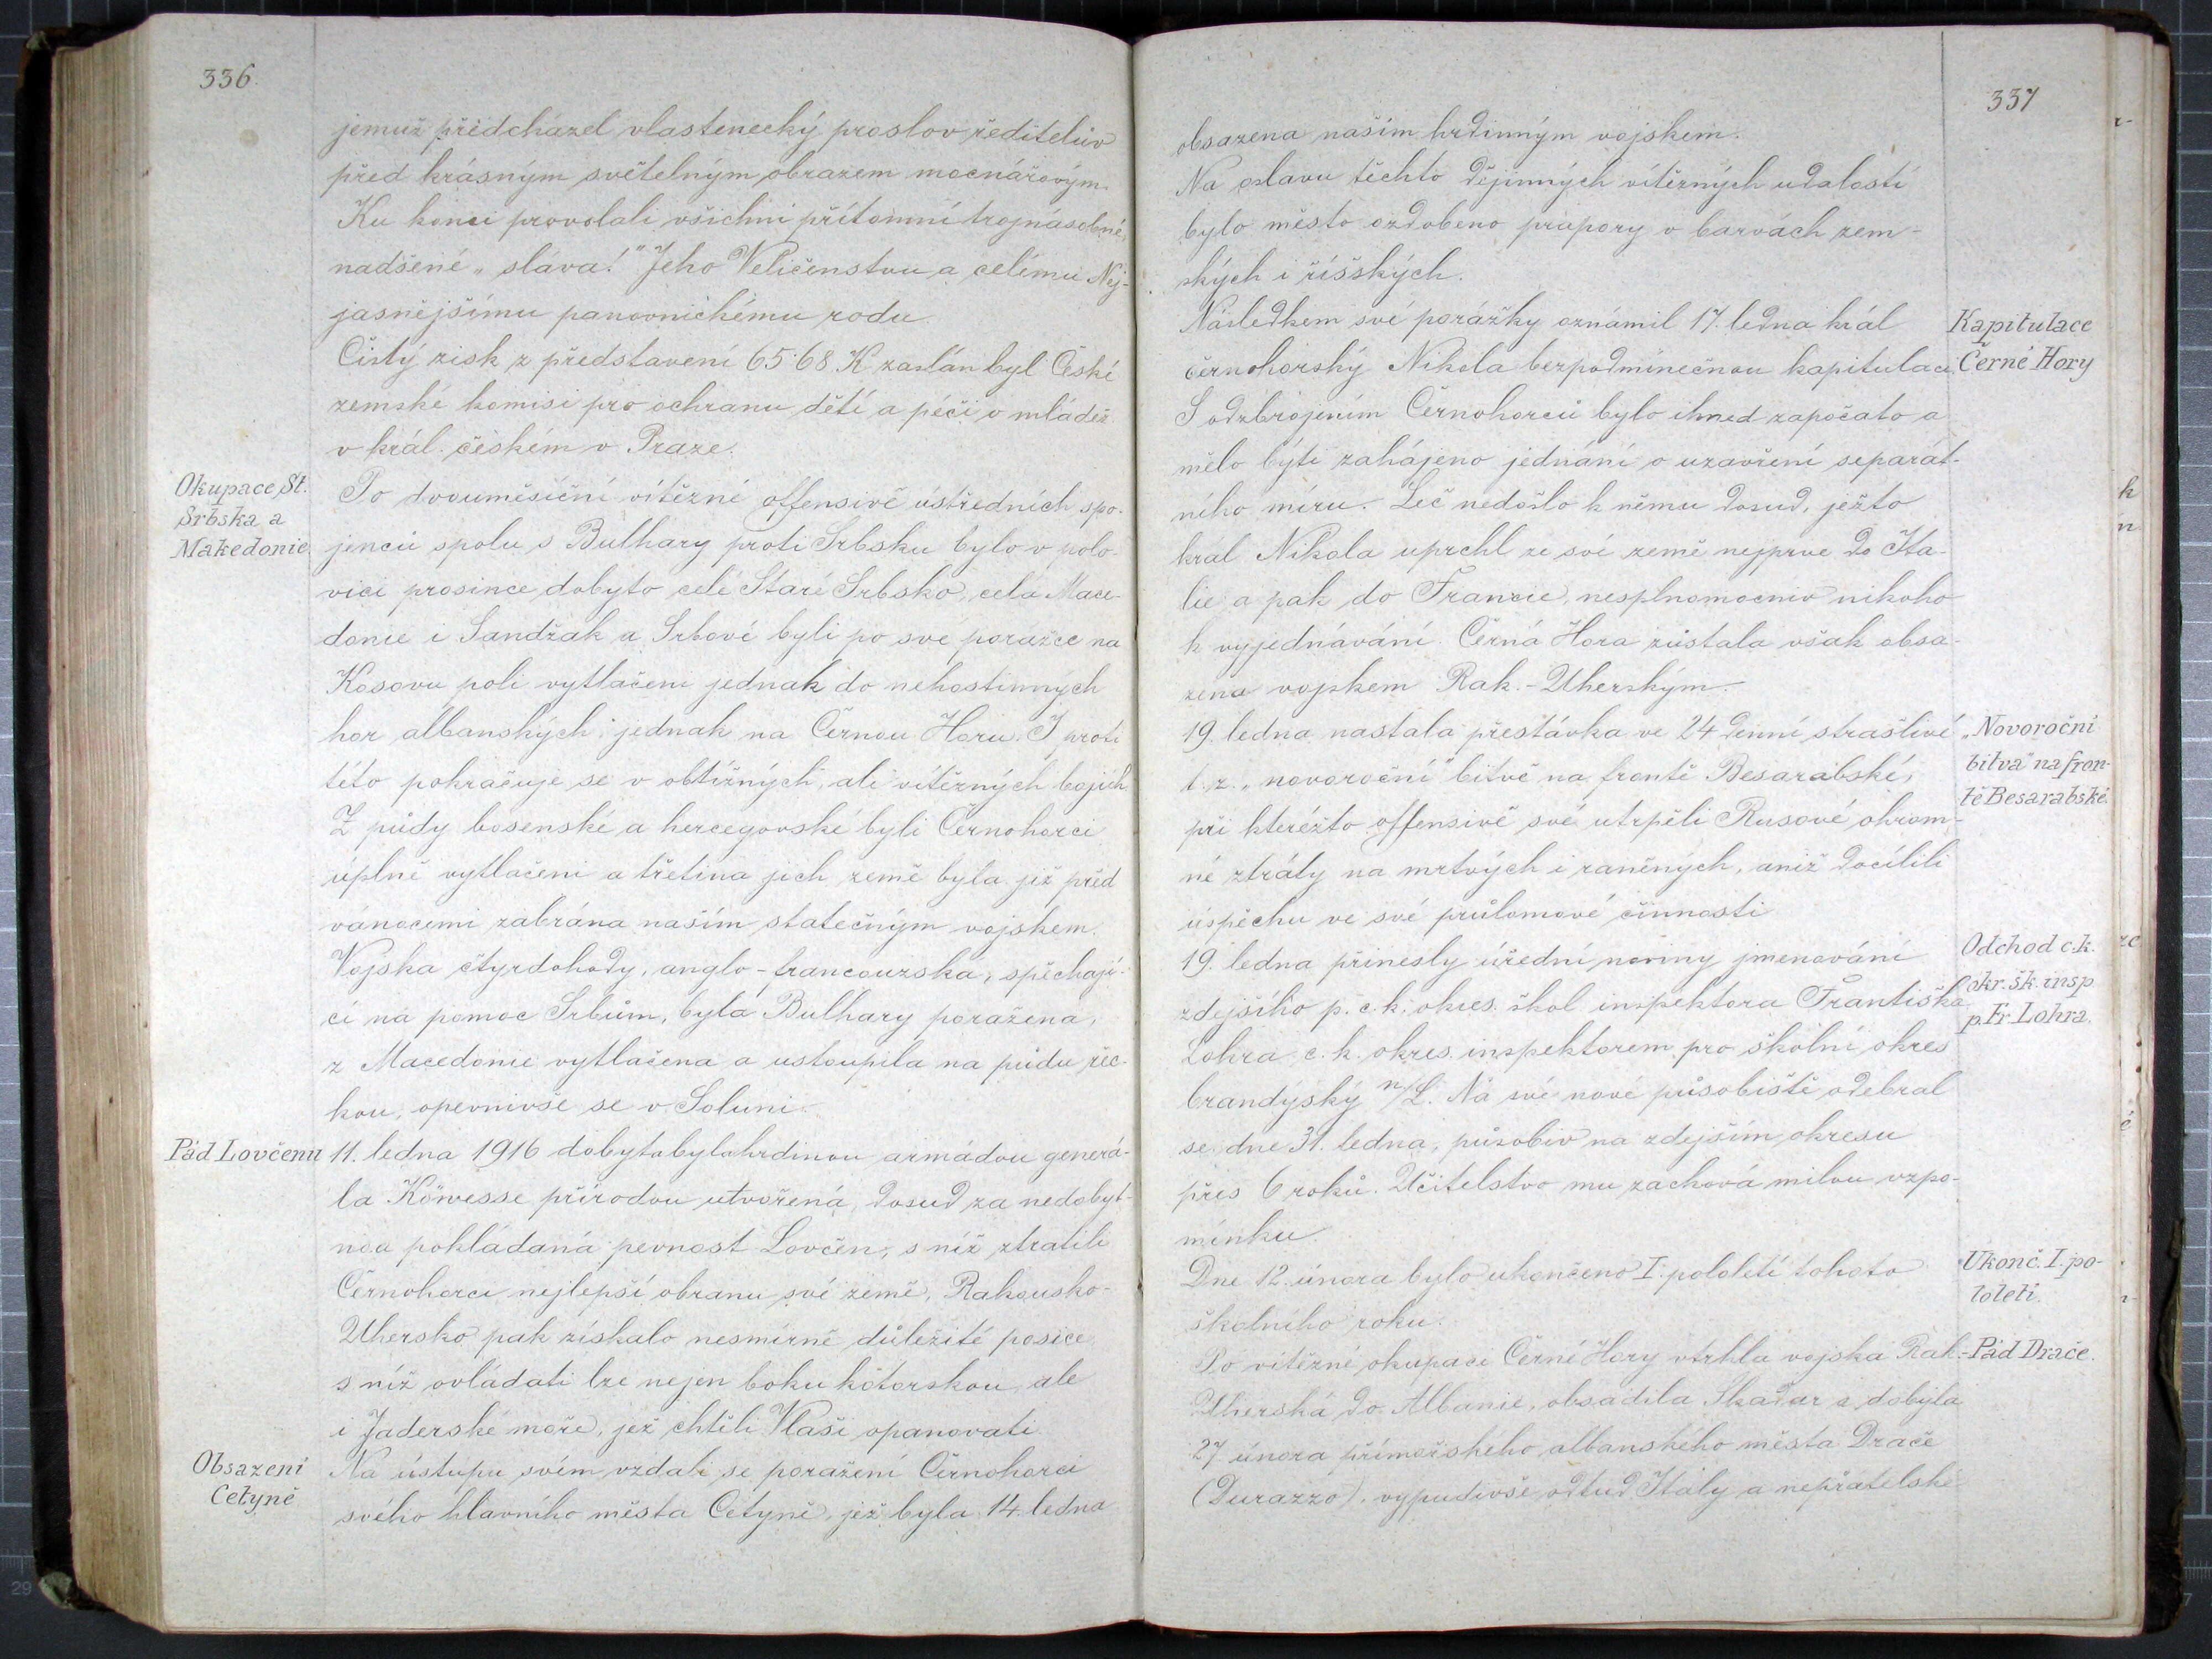 336.
jemuž předcházel vlastenecký proslov ředitelův
před krásným světelným obrazem mocnářovým.
Ku konci provolali všichni přítomní trojnásobné,
nadšené „sláva!" Jeho Veličenstvu a celému Nej-
jasnějšímu panovnickému rodu.
Čistý zisk z představení 65·68 K zaslán byl České
zemské komisi pro ochranu dětí a péči o mládež
v král. českém v Praze.
Okupace St.
Srbska a
Makedonie.
Po dvouměsíční vítězné offensivě ústředních spo-
jenců spolu s Bulhary proti Srbsku bylo v polo-
vici prosince dobyto celé Staré Srbsko, celá Mace-
donie i Sandžak a Srbové byli po své porážce na
Kosovu poli vytlačeni jednak do nehostinných
hor albanských, jednak na Černou Horu. I proti
této pokračuje se v obtížných, ale vítězných bojích
Z půdy bosenské a hercegovské byli Černohorci
úplně vytlačeni a třetina jich země byla již před
vánocemi zabrána naším statečným vojskem.
Vojska čtyrdohody, anglo-francouzská, spěchají-
cí na pomoc Srbům, byla Bulhary poražena,
z Macedonie vytlačena a ustoupila na půdu řec-
kou, opevnivše se v Soluni.
Pád Lovčenu
11. ledna 1916 dobyta byla hrdinou armádou generá-
la Köwesse přírodou utvořená, dosud za nedobyt-
nou pokládaná pevnost Lovčen, s níž ztratili
Černohorci nejlepší obranu své země, Rakousko-
Uhersko pak získalo nesmírně důležité posice
s níž ovládati lze nejen boku kotorskou, ale
i Jaderské moře, jež chtěli Vlaši opanovati.
Obsazení
Cetyně
Na ústupu svém vzdali se poražení Černohorci
svého hlavního města Cetyně, jež byla 14. ledna
337
obsazena naším hrdinným vojskem.
Na oslavu těchto dějinných vítězných událostí
bylo město ozdobeno prapory v barvách zem-
ských i říšských.
Kapitulace
Černé Hory
Následkem své porážky oznámil 17. ledna král
černohorský Nikola bezpodmínečnou kapitulaci.
S odzbrojením Černohorců bylo ihned započato a
mělo býti zahájeno jednání o uzavření separát-
ního míru. Leč nedošlo k němu dosud, ježto
král Nikola uprchl ze své země nejprve do Ita-
lie a pak do Francie, nesplnomocniv nikoho
k vyjednávání. Černá Hora zůstala však obsa-
zena vojskem Rak.-Uherským.
„Novoroční
bitva" na fron-
tě Besarabské.
19. ledna nastala přestávka ve 24 denní strašlivé
t. z. „novoroční" bitvě na frontě Besarabské,
při kteréžto offensivě své utrpěli Rusové ohrom-
né ztráty na mrtvých i raněných, aniž docílili
úspěchu ve své průlomové činnosti
Odchod c.k.
okr. šk. insp.
p. Fr. Lohra.
19. ledna přinesly úřední noviny jmenování
zdejšího p. c. k. okres. škol inspektora Františka
Lohra c. k. okres. inspektorem pro školní okres
brandýský n/L. Na své nové působiště odebral
se dne 31. ledna, působiv na zdejším okresu
přes 6 roků. Učitelstvo mu zachová milou vzpo-
mínku.
Ukonč. I. po-
loletí.
Dne 12. února bylo ukončeno I. pololetí tohoto
školního roku.
Pád Drače.
Po vítězné okupaci Černé Hory vtrhla vojska Rak.-
Uherská do Albanie, obsadila Skadar a dobyla
27 února přímořského albanského města Drače
(Durazzo), vypudivše odtud Italy a nepřátelské